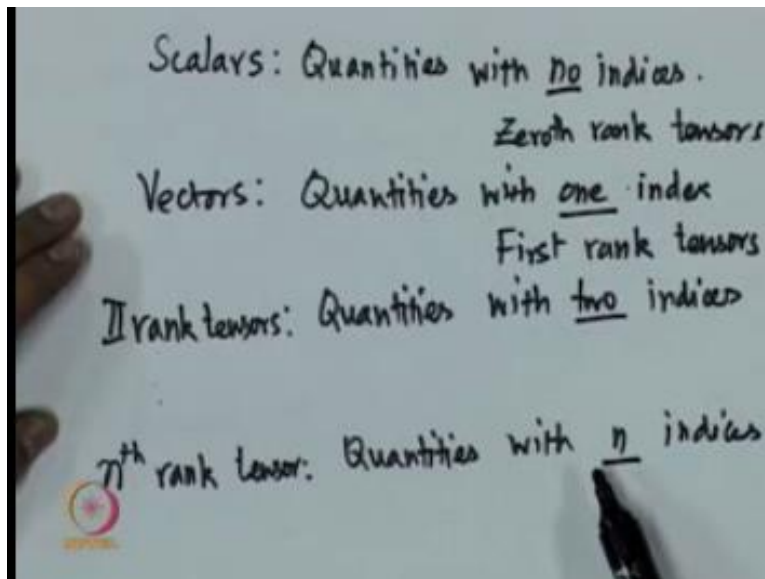 Scalars: Quantities with no indices.
Zeroth rank tensors
Vectors: Quantities with one index
First rank tensors
II rank tensors: Quantities with two indices
nth rank tensor: Quantities with n indices